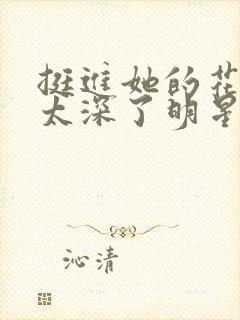 挺进她的花
太深了明星
沁清